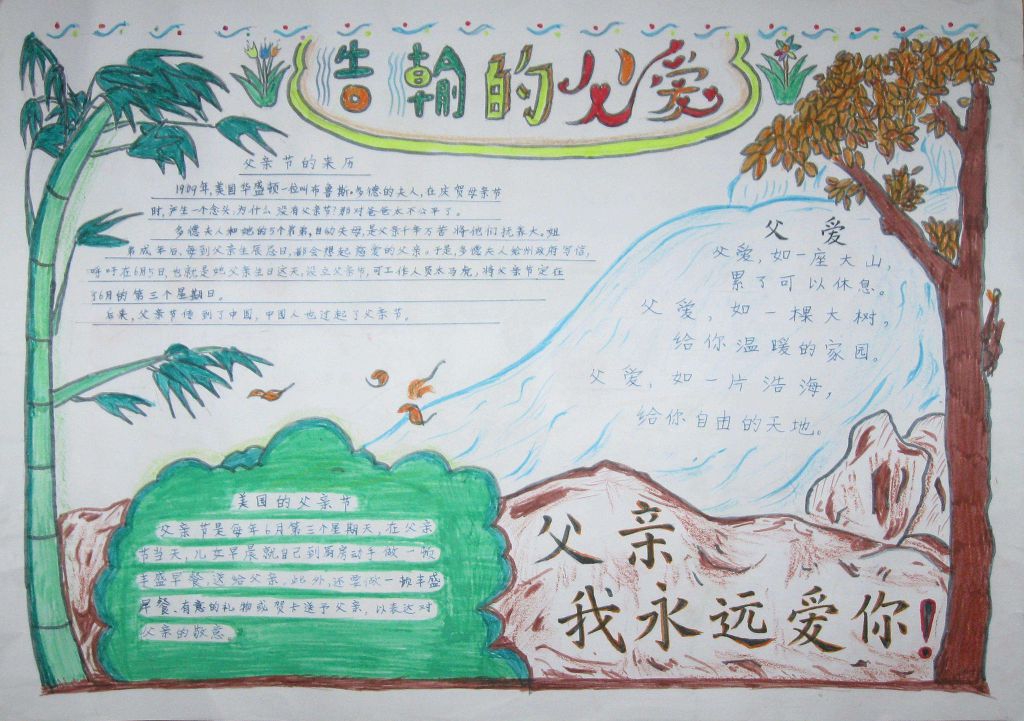 浩翰的父爱
父亲节的来历
1909年,美国华盛顿一位叫布鲁斯·多德的夫人,在庆贺母亲节
时,产生一个念头:为什么没有父亲节?那对爸爸太不公平了。
多德夫人和她的5个弟弟,自幼失母,是父亲千辛万苦将他们抚养大。姐
弟成年后,每到父亲生辰忌日,都会想起慈爱的父亲。于是,多德夫人给州政府写信,
呼吁在6月5日,也就是她父亲生日这天,设立父亲节,可工作人员太马虎,将父亲节定在
了6月的第三个星期日。
后来,父亲节传到了中国,中国人也过起了父亲节。
父爱
父爱,如一座大山,
累了可以休息。
父爱,如一棵大树,
给你温暖的家园。
父爱,如一片浩海,
给你自由的天地。
美国的父亲节
父亲节是每年6月第三个星期天,在父亲
节当天,儿女早晨就自己到厨房动手做一顿
丰盛早餐,送给父亲,此外,还要做一顿丰盛
早餐、有意的礼物或贺卡送予父亲,以表达对
父亲的敬意。
父亲
我永远爱你!